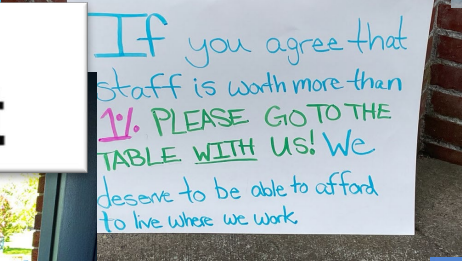 If you agree that
staff is worth more than
1% PLEASE GO TO THE
TABLE WITH US! We
deserve to be able to afford
to live where we work